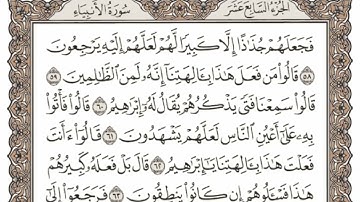 الجزء السابع عشر
سورة الأنبياء
فَجَعَلَهُمْ جُذَٰذًا إِلَّا كَبِيرًا لَّهُمْ لَعَلَّهُمْ إِلَيْهِ يَرْجِعُونَ
٥٨ قَالُوا۟ مَن فَعَلَ هَٰذَا بِـَٔالِهَتِنَآ إِنَّهُۥ لَمِنَ ٱلظَّٰلِمِينَ ٥٩
قَالُوا۟ سَمِعْنَا فَتًى يَذْكُرُهُمْ يُقَالُ لَهُۥٓ إِبْرَٰهِيمُ ٦٠ قَالُوا۟ فَأْتُوا۟
بِهِۦ عَلَىٰٓ أَعْيُنِ ٱلنَّاسِ لَعَلَّهُمْ يَشْهَدُونَ ٦١ قَالُوٓا۟ ءَأَنتَ
فَعَلْتَ هَٰذَا بِـَٔالِهَتِنَا يَٰٓإِبْرَٰهِيمُ ٦٢ قَالَ بَلْ فَعَلَهُۥ كَبِيرُهُمْ
هَٰذَا فَسْـَٔلُوهُمْ إِن كَانُوا۟ يَنطِقُونَ ٦٣ فَرَجَعُوٓا۟ إِلَىٰٓ